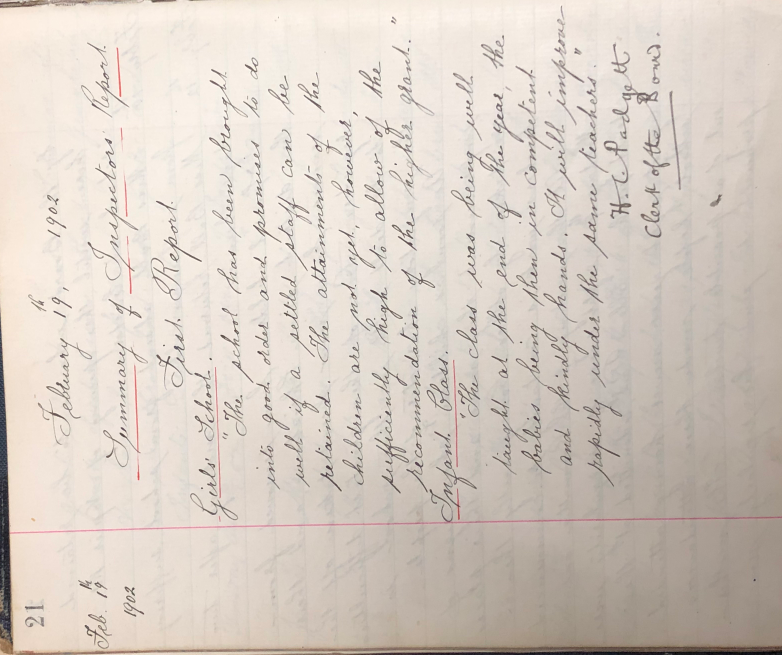 21
Feb. 19th
1902
February 19th, 1902
Summary of Inspectors Report.
First Report.
Girls' School.
"The school has been brought
into good order and promises to do
well if a settled staff can be
retained. The attainments of the
children are not yet, however,
sufficiently high to allow of the
recommendation of the higher grant."
Infant Class.
"The class was being well
taught at the end of the year, the
babies being then in competent
and kindly hands. It will improve
rapidly under the same teachers."
H. C Padgett
Clerk of the Board.